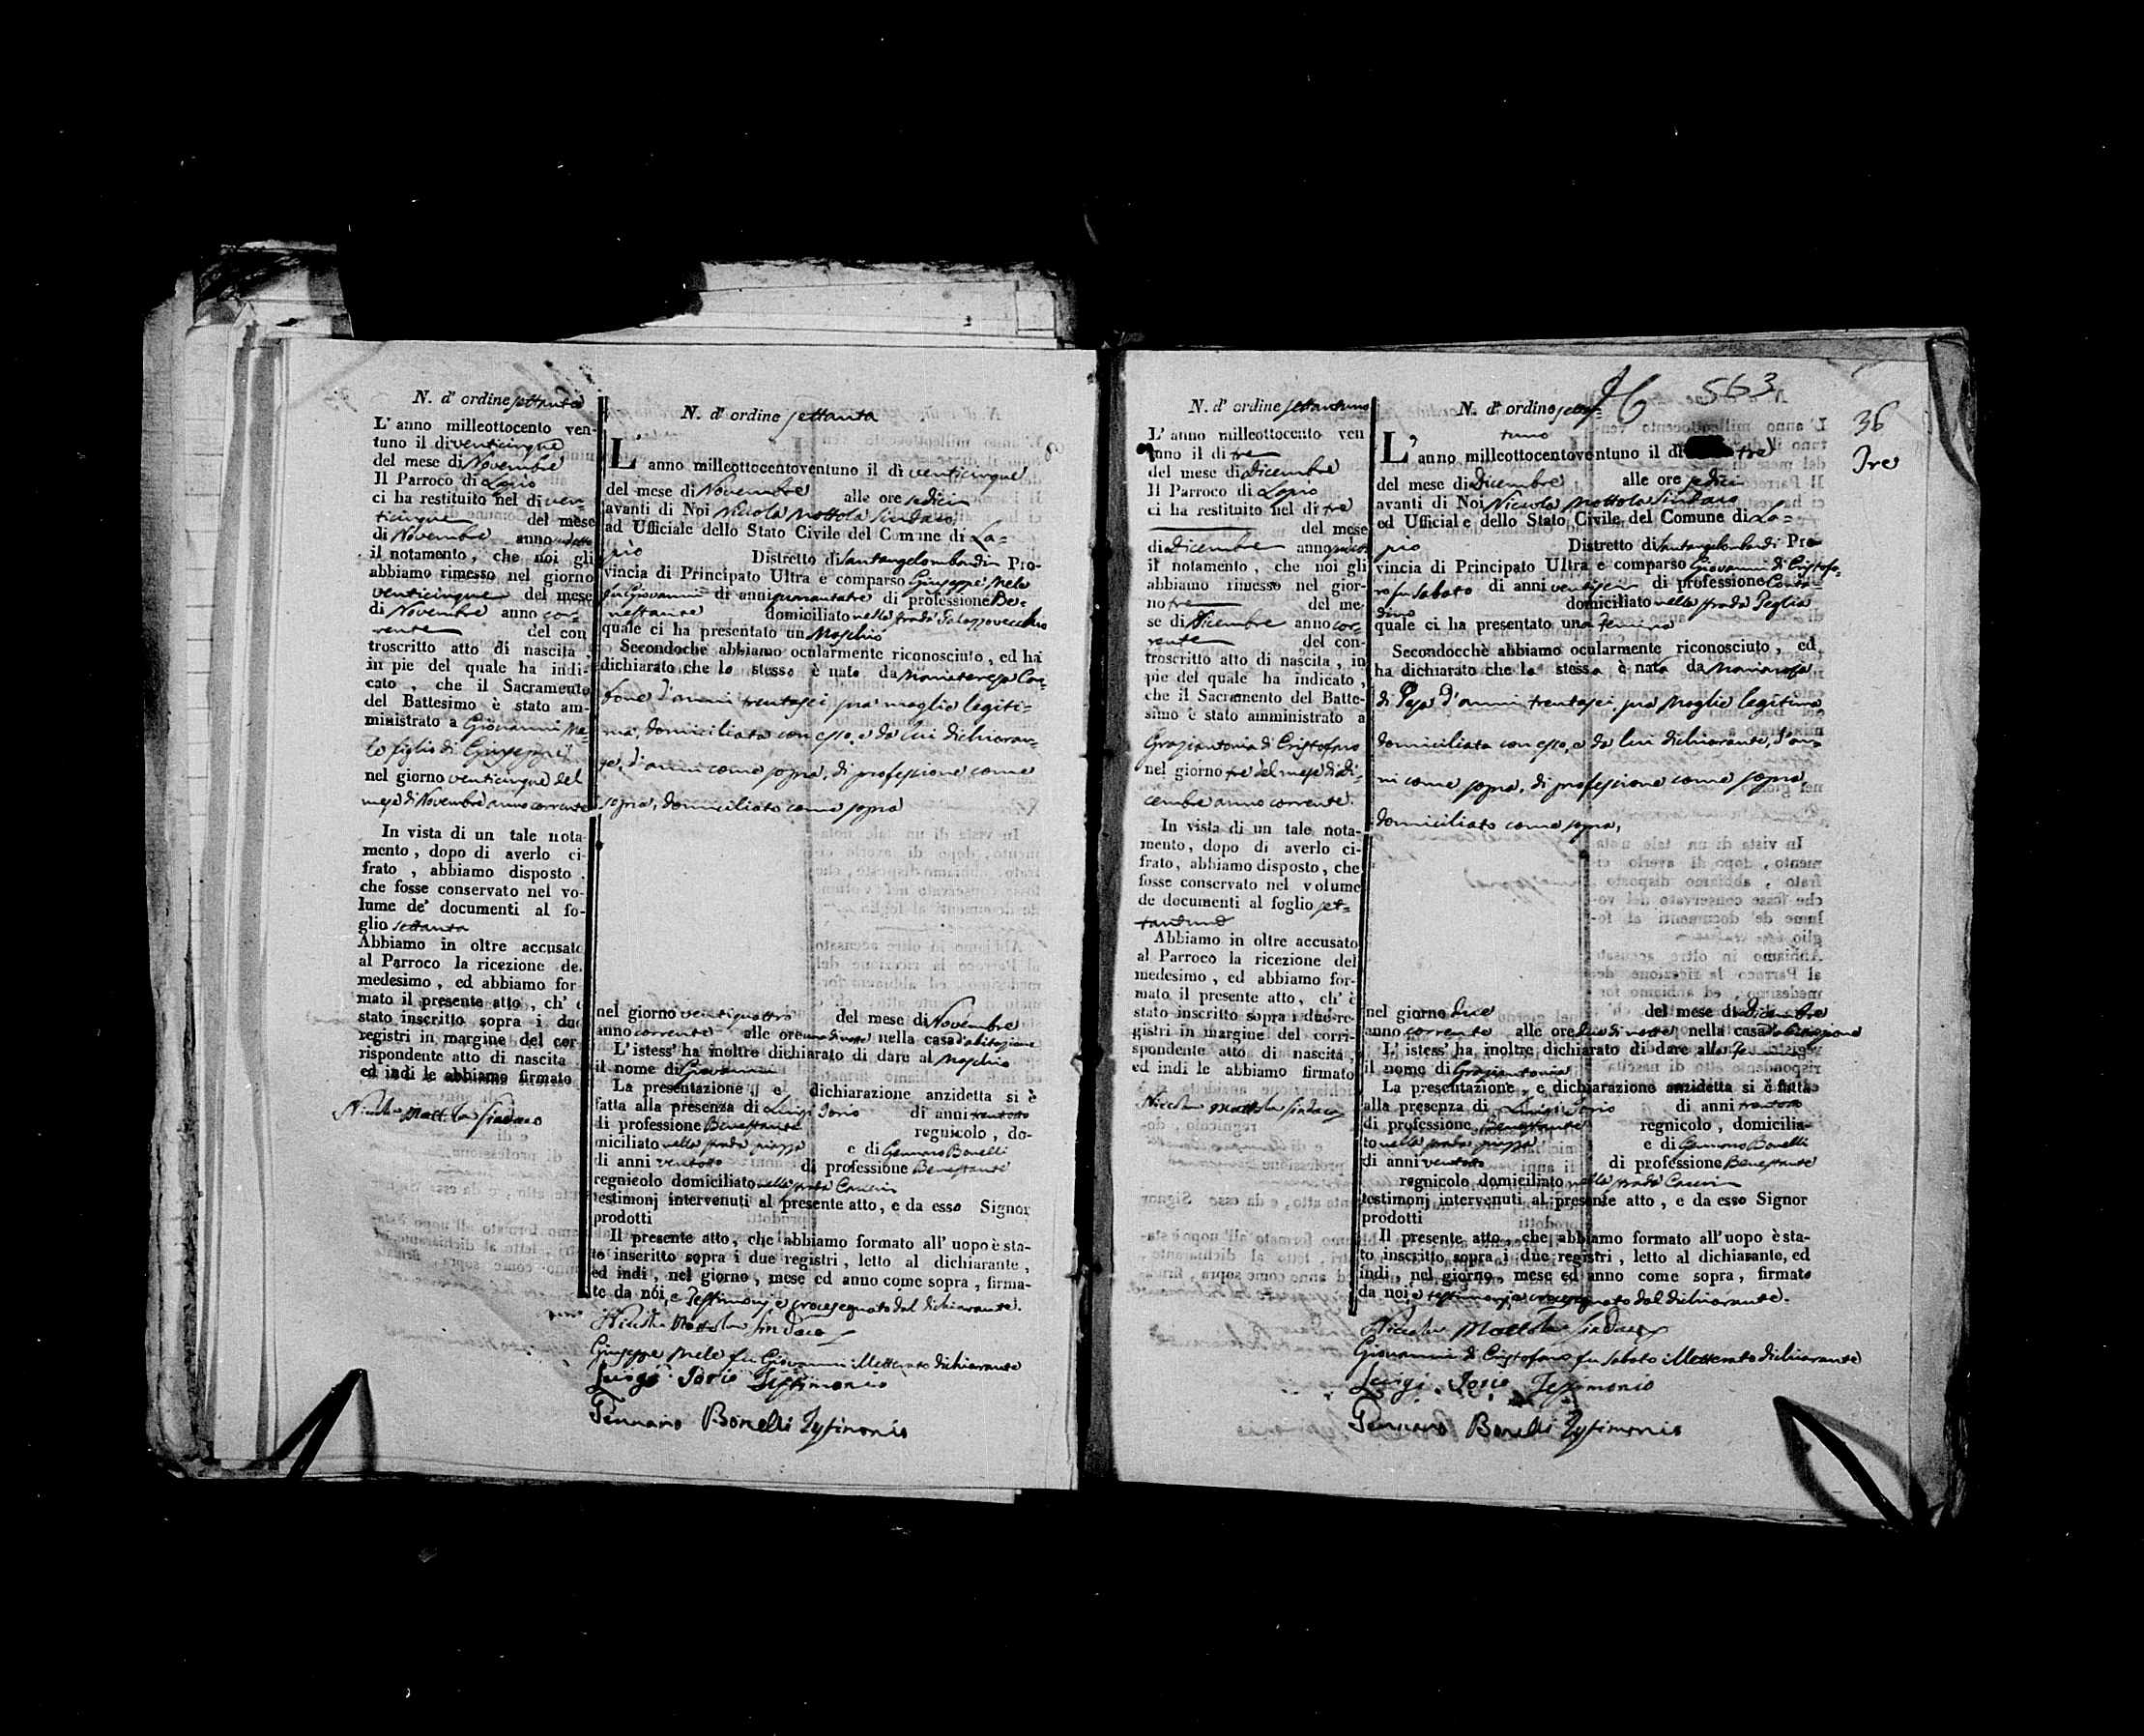 N. d' ordine settanta
L' anno milleottocento ven-
tuno il di venticinque
del mese di Novembre
Il Parroco di Lapio
ci ha restituito nel di ven-
ticinque del mese
di Novembre anno
il notamento, che noi gli
abbiamo rimesso nel giorno
venticinque del mese
di Novembre anno cor-
rente del con
troscritto atto di nascita,
in pie del quale ha indi-
cato, che il Sacramento
del Battesimo è stato am-
ministrato a Giovanni Me-
le figlio di Giuseppe
nel giorno venticinque del
mese di Novembre anno corrente
In vista di un tale nota-
mento, dopo di averlo ci-
frato, abbiamo disposto
che fosse conservato nel vo-
lume de' documenti al fo-
glio settanta
Abbiamo in oltre accusato
al Parroco la ricezione de
medesimo, ed abbiamo for
mato il presente atto, ch' è
stato inscritto sopra i due
registri in margine del cor-
rispondente atto di nascita
ed indi le abbiamo firmato
Nicola Mottola Sindaco
N. d' ordine settanta
L' anno milleottocentoventuno il di venticinque
del mese di Novembre alle ore sedici
avanti di Noi Niccola Mottola Sindaco
ad Ufficiale dello Stato Civile del Comune di La=
pio Distretto di Santangelombardi Pro-
vincia di Principato Ultra è comparso Giuseppe Mele
fu Giovanni di anni quarantatre di professione Be-
nestante domiciliato nella strada Palazzovecchio
quale ci ha presentato un Maschio
Secondochè abbiamo ocularmente riconosciuto, ed ha
dichiarato che lo stesso è nato da Mariateresa
d'anni trentasei, sua moglie legiti=
ma, domiciliata con esso, e da lui dichiaran-
te, d'anni come sopra, di professione come
sopra, domiciliato come sopra
nel giorno ventiquattro del mese di Novembre
anno corrente alle ore una di notte nella casa d'abitazione
L' istess' ha inoltre dichiarato di dare al Maschio
il nome di Giovanni
La presentazione e dichiarazione anzidetta si è
fatta alla presenza di Luigi Iorio di anni trentotto
di professione Benestante regnicolo, do-
miciliato nella strada piazza e di Gennaro Bonelli
di anni ventotto di professione Benestante
regnicolo domiciliato nella strada
testimonj intervenuti al presente atto, e da esso Signor
prodotti
Il presente atto, che abbiamo formato all' uopo è sta-
to inscritto sopra i due registri, letto al dichiarante,
ed indi, nel giorno, mese ed anno come sopra, firma-
to da noi, e Testimonj e crocesegnato dal dichiarante.
Nicola Mottola Sindaco
Giuseppe Mele fu Giovanni illetterato dichiarante
Luigi Iorio Testimonio
Gennaro Bonelli Testimonio
563
36
Tre
N. d' ordine settantuno
L' anno milleottocento ven
tuno il di tre
del mese di Dicembre
Il Parroco di Lapio
ci ha restituito nel di tre
del mese
di Dicembre anno
il notamento, che noi gli
abbiamo rimesso nel gior-
no tre del me-
se di Dicembre anno cor-
rente del con-
troscritto atto di nascita, in
pie del quale ha indicato,
che il Sacramento del Batte-
simo è stato amministrato a
Graziantonia di Cristofaro
nel giorno tre del mese di Di-
cembre anno corrente.
In vista di un tale nota-
mento, dopo di averlo ci-
frato, abbiamo disposto, che
fosse conservato nel volume
de documenti al foglio set-
tantuno
Abbiamo in oltre accusato
al Parroco la ricezione del
medesimo, ed abbiamo for-
mato il presente atto, ch' è
stato inscritto sopra i due re-
gistri in margine del corri-
spondente atto di nascita,
ed indi le abbiamo firmato
Nicola Mottola Sindaco
N. d' ordine settan-
tuno
L' anno milleottocentoventuno il di tre
del mese di Dicembre alle ore sedici
avanti di Noi Niccola Mottola Sindaco
ed Ufficiale dello Stato Civile del Comune di La=
pio Distretto di Santangelombardi Pro
vincia di Principato Ultra è comparso Giovanni di Cristofa-
ro fu Sabato di anni ventisei di professione Conta-
dino domiciliato nella strada Teglia
quale ci ha presentato una femina
Secondocchè abbiamo ocularmente riconosciuto, ed
ha dichiarato che la stessa è nata da Mariarosa
di Pepa d'anni trentasei, sua Moglie legitima
domiciliata con esso, e da lui dichiarante, d'an-
ni come sopra, di professione come sopra,
domiciliato come sopra,
nel giorno due del mese di Dicembre
anno corrente alle ore due di notte nella casa d'abitazione
L' istess' ha inoltre dichiarato di dare alla femina
il nome di Graziantonia
La presentazione, e dichiarazione anzidetta si è fatta
alla presenza di Luigi Iorio di anni trentotto
di professione Benestante regnicolo, domicilia-
to nella strada piazza e di Gennaro Bonelli
di anni ventotto di professione Benestante
regnicolo domiciliato nella strada
testimonj intervenuti al presente atto, e da esso Signor
prodotti
Il presente atto, che abbiamo formato all' uopo è sta-
to inscritto sopra i due registri, letto al dichiarante, ed
indi, nel giorno, mese ed anno come sopra, firmato
da noi, e testimonj e crocesegnato dal dichiarante.
Nicola Mottola Sindaco
Giovanni di Cristofaro fu Sabato illetterato dichiarante
Luigi Iorio Testimonio
Gennaro Bonelli Testimonio